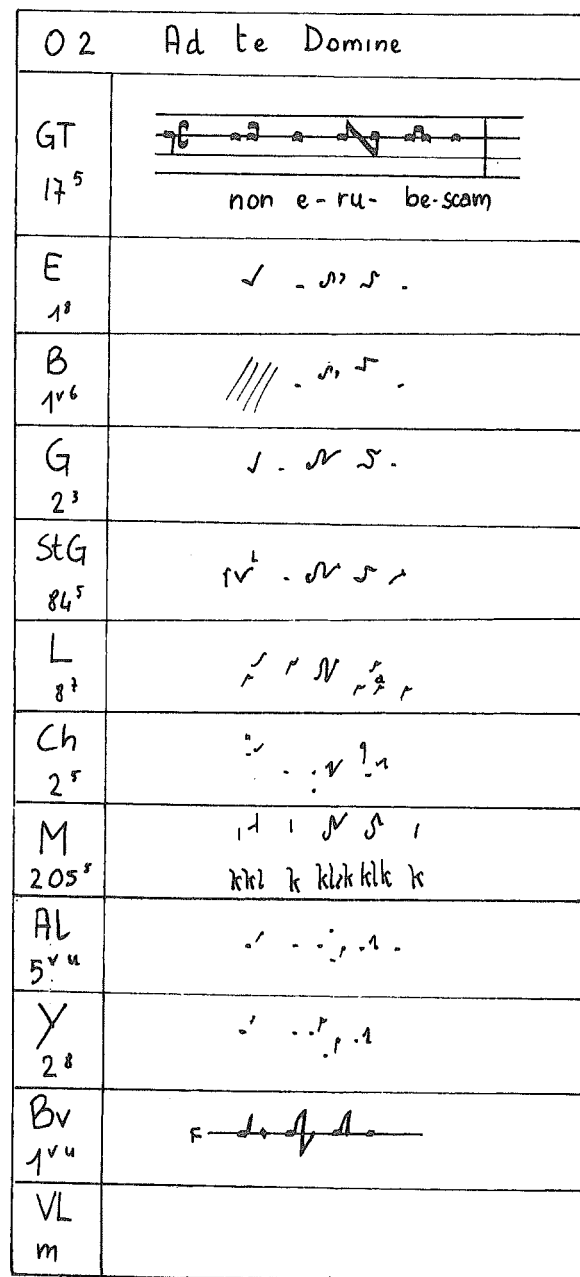 O 2 Ad te Domine
GT
17 5
non e-ru- be-scam
E
1 8
B
1 v 6
G
2 3
StG
84 5
L
8 7
a
Ch
2 5
M
205 8
kkl k klik klk k
AL
5 v u
Y
2 8
Bv
1 v u
F
VL
m